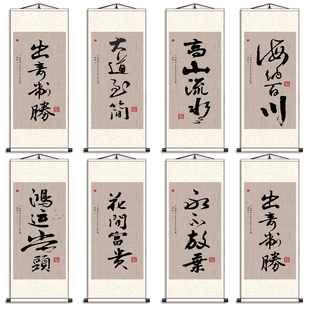 出奇制勝
大道至簡
高山流水
海納百川
鴻运当頭
花開富貴
永不放棄
出奇制勝